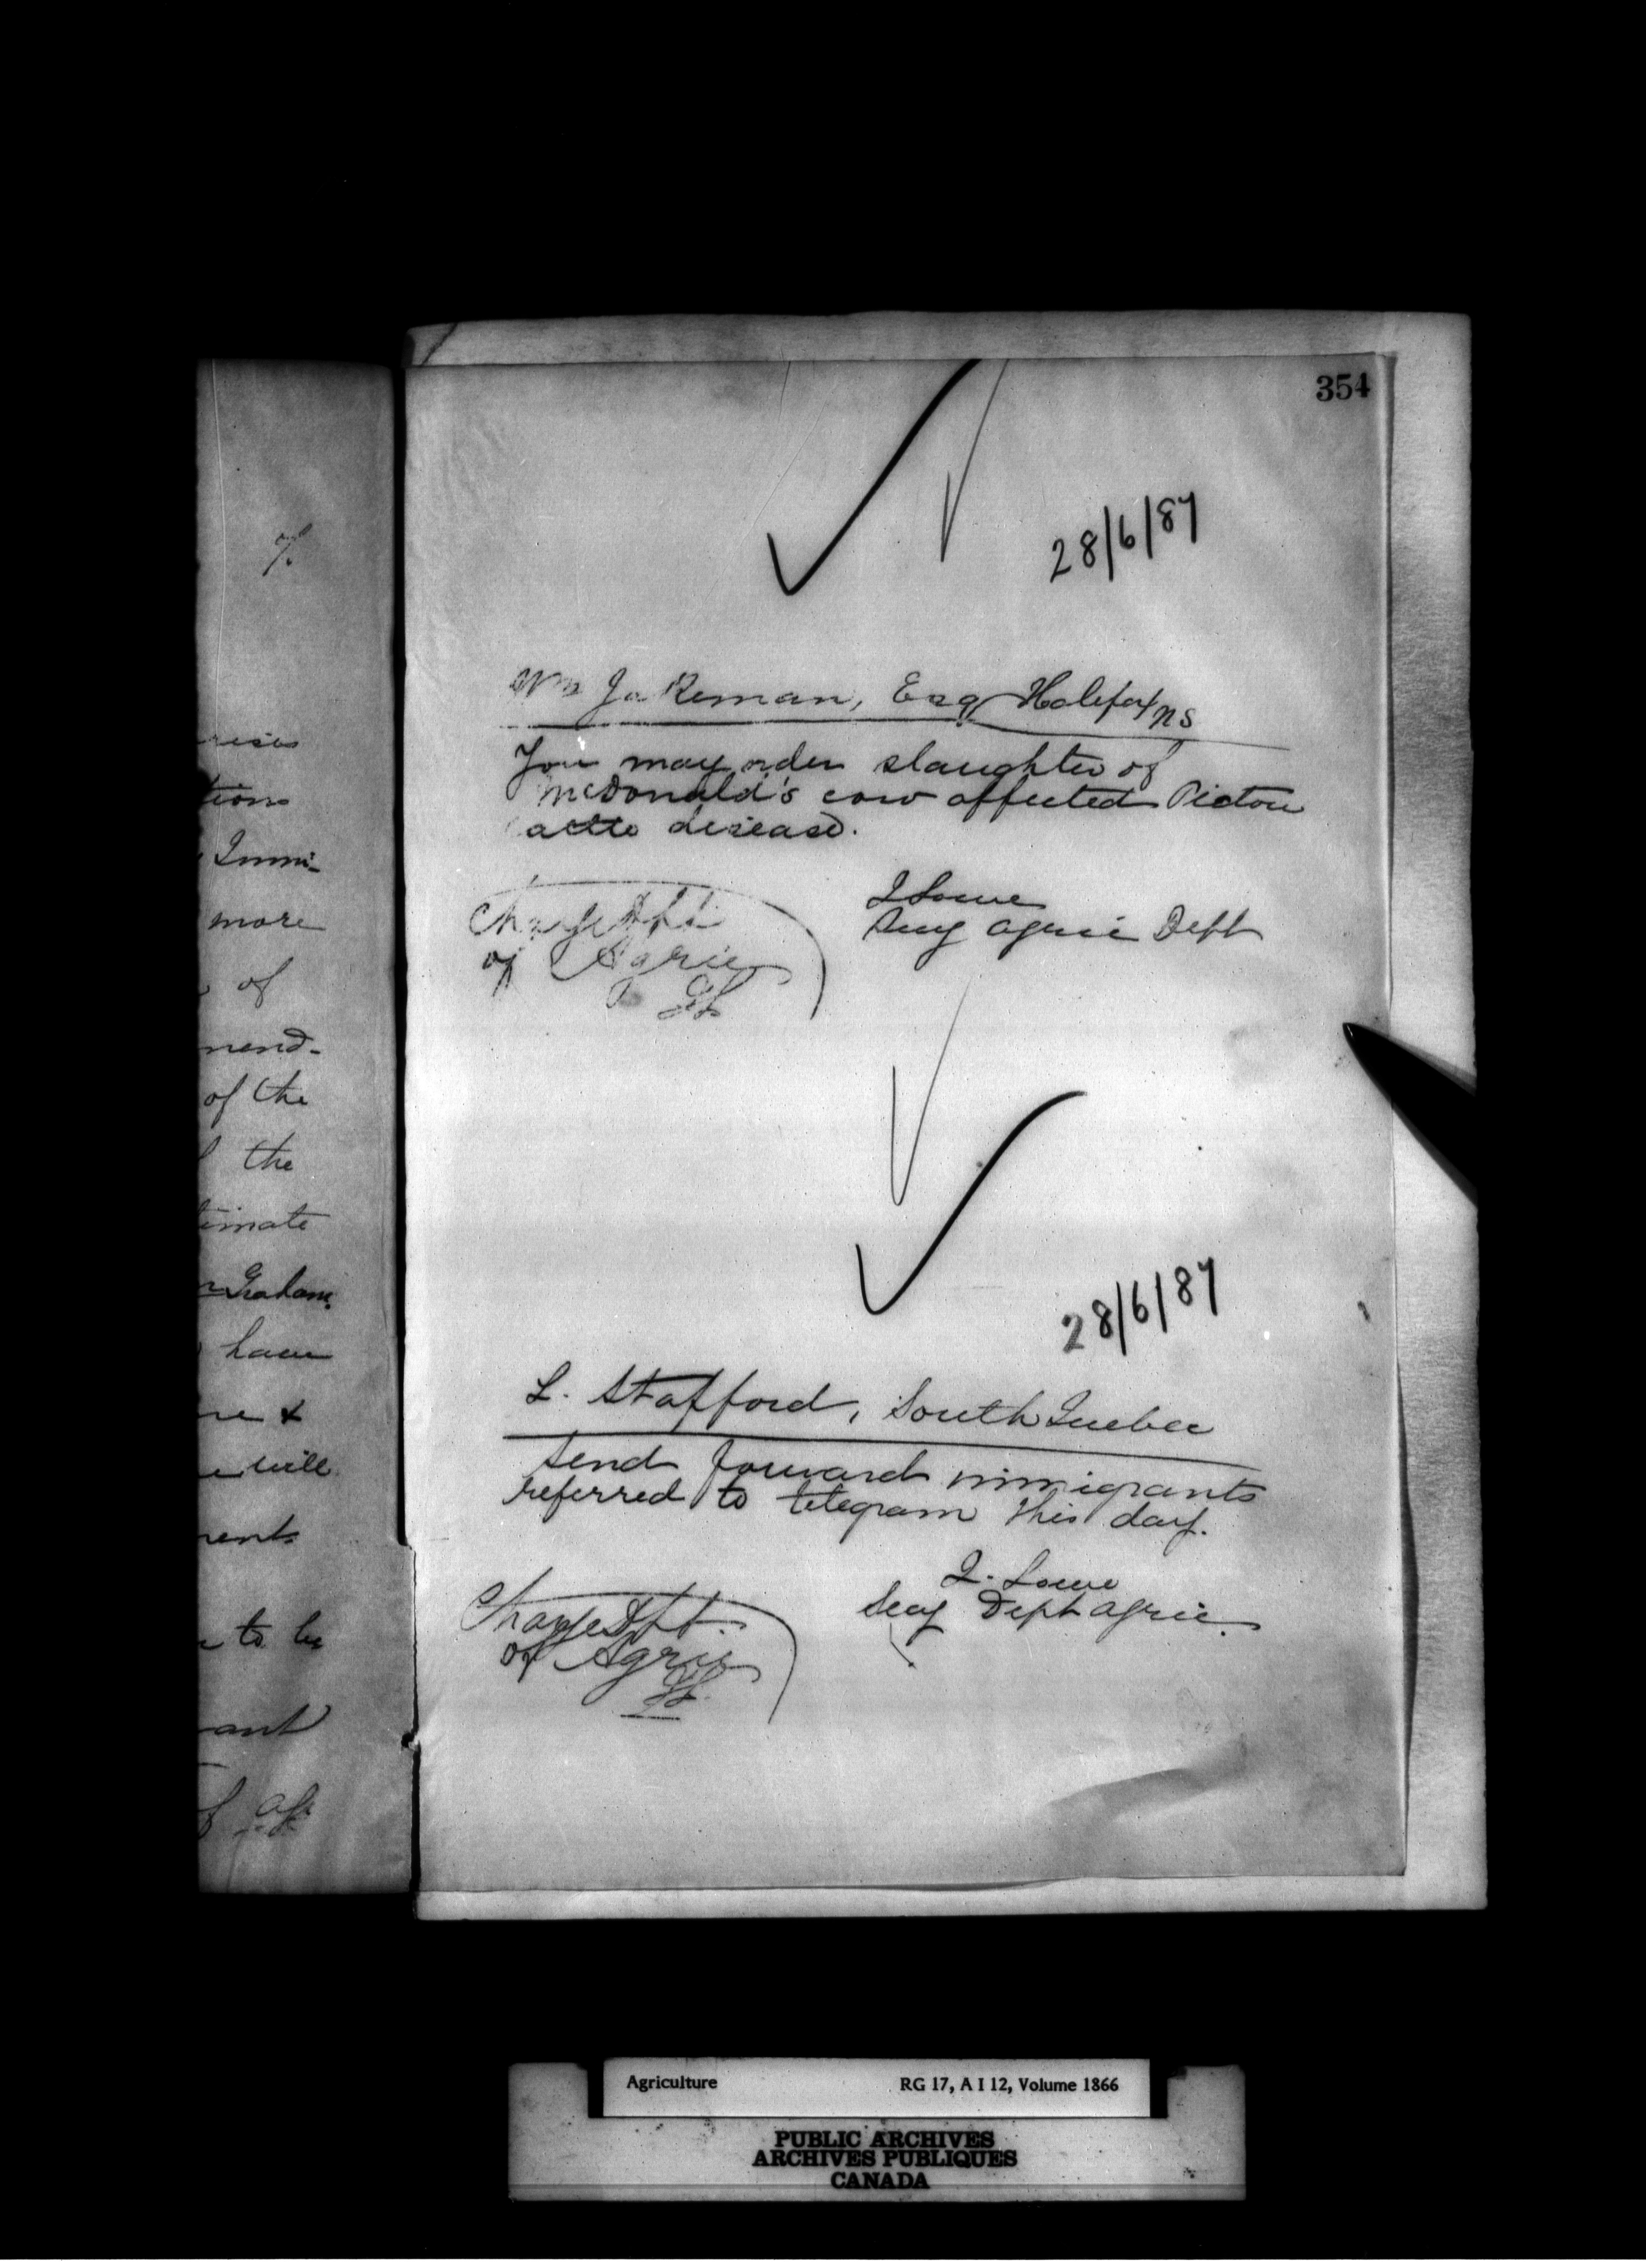 354
28/6/87
Wm Jakeman, Esq Halifax NS
You may order slaughter of
McDonald's cow affected Pictou
cattle disease.
J Lowe
Secy Agric Dept
Charge Dpt
of Agric
JL
28/6/87
L. Stafford, South Quebec
Send forward immigrants
referred to telegram this day.
J. Lowe
Secy Dept Agric.
Charge Dpt.
of Agric
JL
7.
tions
Immi-
more
of
mend-
of the
the
timate
Graham
have
&
will
ments
to be
ant
of
Agriculture RG 17, A I 12, Volume 1866
PUBLIC ARCHIVES
ARCHIVES PUBLIQUES
CANADA